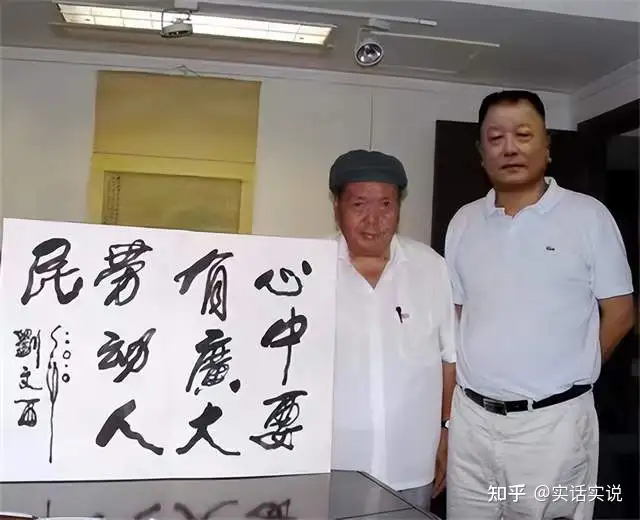 心中要
有廣大
劳动人
民
劉文西
知乎 @实话实说